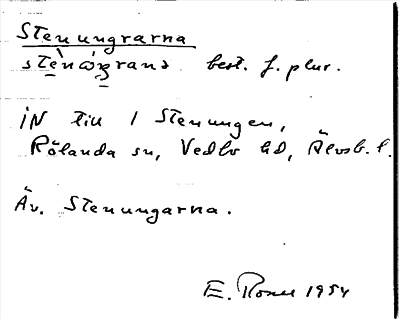 Stenungrarna
best. f. plur.
IN till 1 Stenungen,
Rölanda sn, Vedbo hd, Älvsb. l.
Äv. Stenungarna.
E. 1954